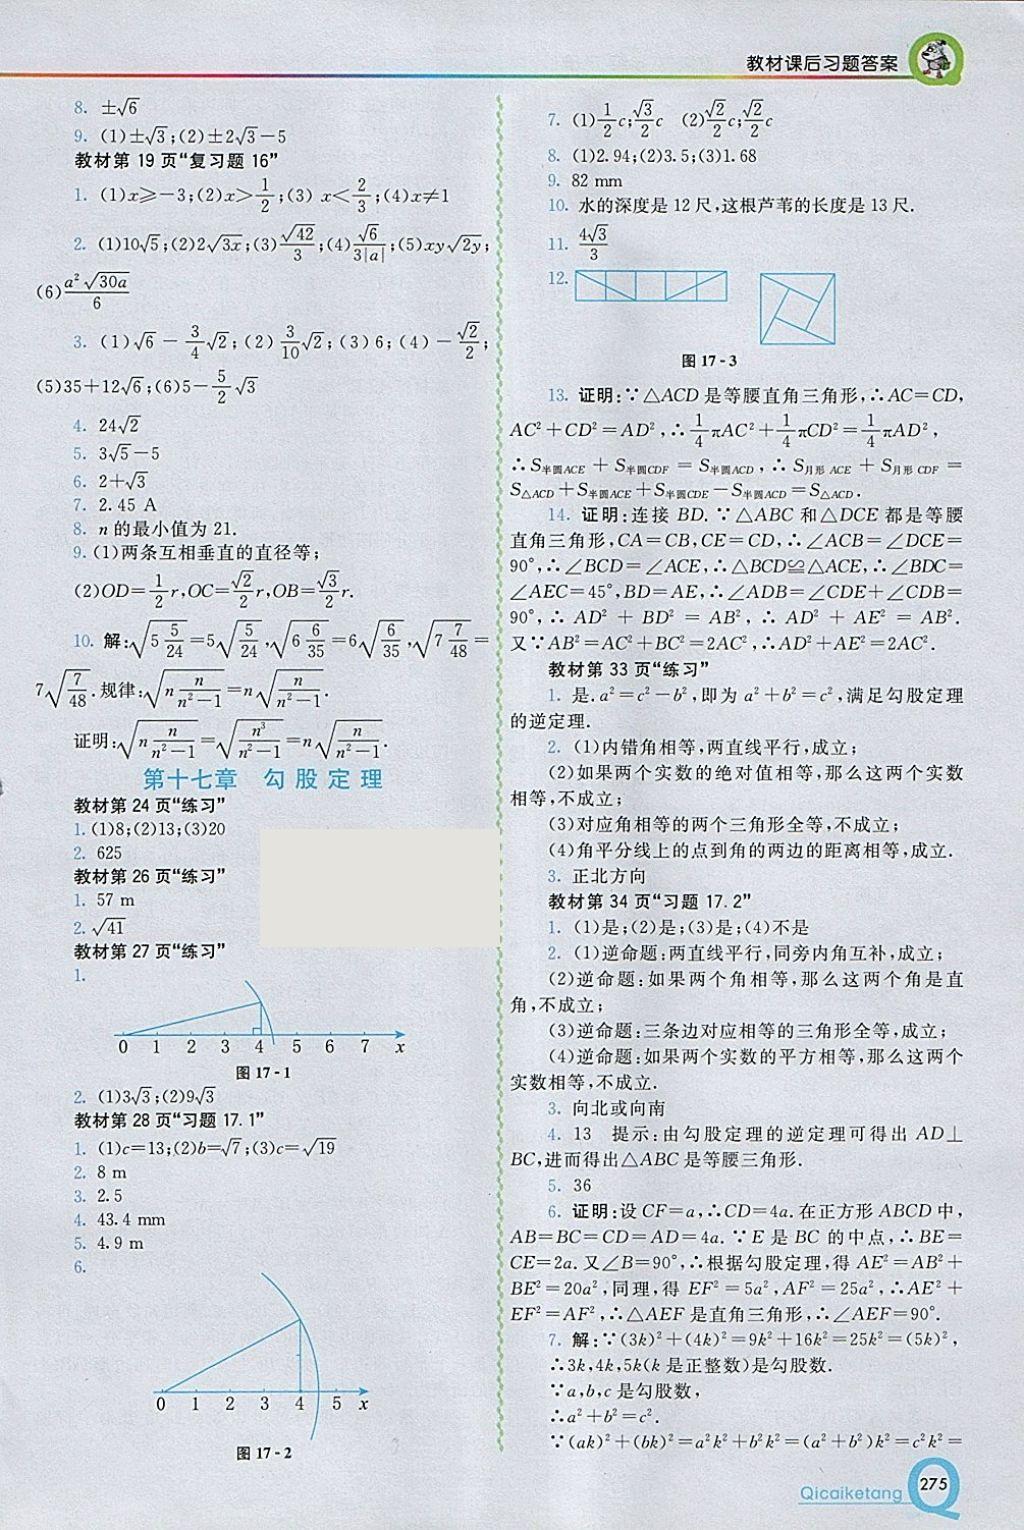 教材课后习题答案
8. ±√6
9. (1)±√3;(2)±2√3-5
教材第19页“复习题16”
1. (1)x≥-3;(2)x>1/2;(3) x<2/3;(4)x≠1
2. (1)10√5;(2)2√(3x);(3)√42/3;(4)√6/(3|a|);(5)xy√(2y);
(6)a²√(30a)/6
3. (1)√6-3/4√2;(2)3/10√2;(3)6;(4)-√2/2;
(5)35+12√6;(6)5-5/2√3
4. 24√2
5. 3√5-5
6. 2+√3
7. 2.45 A
8. n的最小值为21.
9. (1)两条互相垂直的直径等;
(2)OD=1/2r,OC=√2/2r,OB=√3/2r.
10. 解:√(5 5/24)=5√(5/24),√(6 6/35)=6√(6/35),√(7 7/48)=
7√(7/48).规律:√(n n/(n²-1))=n√(n/(n²-1)).
证明:√(n n/(n²-1))=√(n³/(n²-1))=n√(n/(n²-1)).
第十七章 勾股定理
教材第24页“练习”
1. (1)8;(2)13;(3)20
2. 625
教材第26页“练习”
1. 57 m
2. √41
教材第27页“练习”
1.
0 1 2 3 4 5 6 7 x
图17-1
2. (1)3√3;(2)9√3
教材第28页“习题17.1”
1. (1)c=13;(2)b=√7;(3)c=√19
2. 8 m
3. 2.5
4. 43.4 mm
5. 4.9 m
6.
0 1 2 3 4 5 x
图17-2
7. (1)1/2c;√3/2c (2)√2/2c;√2/2c
8. (1)2.94;(2)3.5;(3)1.68
9. 82 mm
10. 水的深度是12尺,这根芦苇的长度是13尺.
11. 4√3/3
12.
图17-3
13. 证明:∵△ACD是等腰直角三角形,∴AC=CD,
AC²+CD²=AD²,∴1/4πAC²+1/4πCD²=1/4πAD²,
∴S半圆ACE+S半圆CDF=S半圆ACD,∴S月形ACE+S月形CDF=
S△ACD+S半圆ACE+S半圆CDE-S半圆ACD=S△ACD.
14. 证明:连接BD.∵△ABC和△DCE都是等腰
直角三角形,CA=CB,CE=CD,∴∠ACB=∠DCE=
90°,∴∠BCD=∠ACE,∴△BCD≌△ACE,∴∠BDC=
∠AEC=45°,BD=AE,∴∠ADB=∠CDE+∠CDB=
90°,∴AD²+BD²=AB²,∴AD²+AE²=AB².
又∵AB²=AC²+BC²=2AC²,∴AD²+AE²=2AC².
教材第33页“练习”
1. 是.a²=c²-b²,即为a²+b²=c²,满足勾股定理
的逆定理.
2. (1)内错角相等,两直线平行,成立;
(2)如果两个实数的绝对值相等,那么这两个实数
相等,不成立;
(3)对应角相等的两个三角形全等,不成立;
(4)角平分线上的点到角的两边的距离相等,成立.
3. 正北方向
教材第34页“习题17.2”
1. (1)是;(2)是;(3)是;(4)不是
2. (1)逆命题:两直线平行,同旁内角互补,成立;
(2)逆命题:如果两个角相等,那么这两个角是直
角,不成立;
(3)逆命题:三条边对应相等的三角形全等,成立;
(4)逆命题:如果两个实数的平方相等,那么这两个
实数相等,不成立.
3. 向北或向南
4. 13 提示:由勾股定理的逆定理可得出AD⊥
BC,进而得出△ABC是等腰三角形.
5. 36
6. 证明:设CF=a,∴CD=4a.在正方形ABCD中,
AB=BC=CD=AD=4a.∵E是BC的中点,∴BE=
CE=2a.又∠B=90°,∴根据勾股定理,得AE²=AB²+
BE²=20a²,同理,得EF²=5a²,AF²=25a²,∴AE²+
EF²=AF²,∴△AEF是直角三角形,∴∠AEF=90°.
7. 解:∵(3k)²+(4k)²=9k²+16k²=25k²=(5k)²,
∴3k,4k,5k(k是正整数)是勾股数.
∵a,b,c是勾股数,
∴a²+b²=c².
∵(ak)²+(bk)²=a²k²+b²k²=(a²+b²)k²=c²k²=
Qicaiketang 275